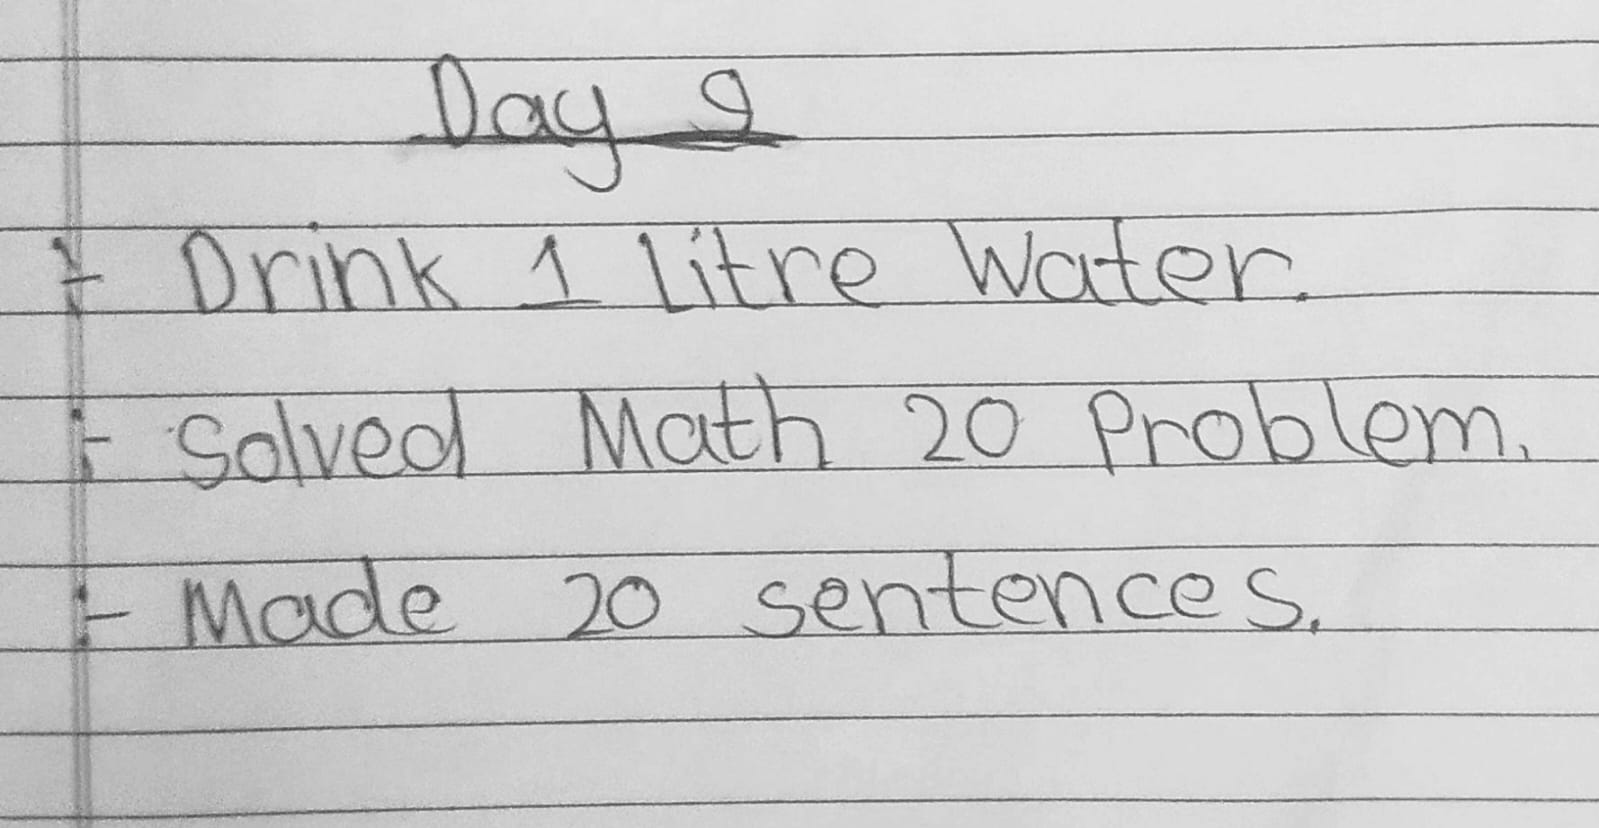 Day 9
:- Drink 1 litre Water.
:- Solved Math 20 Problem.
:- Made 20 sentences.